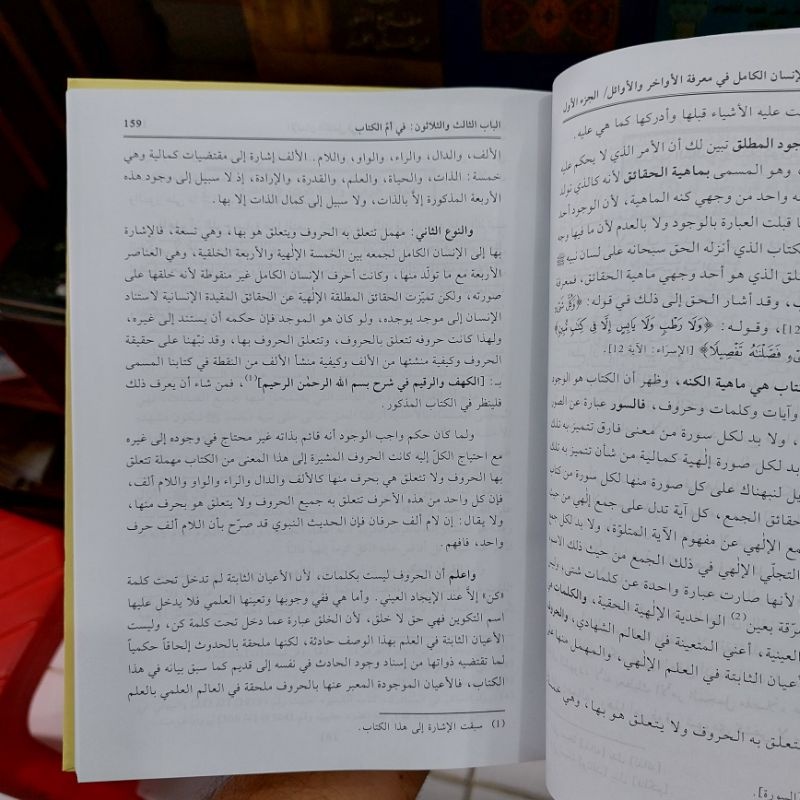 الإنسان الكامل في معرفة الأواخر والأوائل/ الجزء الأول
عليه الأشياء قبلها وأدركها كما هي عليه.
المطلق تبين لك أن الأمر الذي لا يحكم عليه
وهو المسمى بماهية الحقائق لأنه كالذي تولد
واحد من وجهي كنه الماهية، لأن الوجود أحد
قبلت العبارة بالوجود ولا بالعدم لأن ما فيها وجه
الكتاب الذي أنزله الحق سبحانه على لسان نبيه ﷺ
الذي هو أحد وجهي ماهية الحقائق، فمعرفة
وقد أشار الحق إلى ذلك في قوله: ﴿وَكُلَّ شَيْءٍ
12]، وقوله: ﴿وَلَا رَطْبٍ وَلَا يَابِسٍ إِلَّا فِي كِتَابٍ مُبِينٍ﴾
فَصَّلْنَاهُ تَفْصِيلًا﴾ [الإسراء: الآية 12].
هي ماهية الكنه، وظهر أن الكتاب هو الوجود
وآيات وكلمات وحروف، فالسور عبارة عن الصور
ولا بد لكل سورة من معنى فارق تتميز به تلك
لكل صورة إلٰهية كمالية من شأن تتميز به تلك
لنبهناك على كل صورة منها لكل سورة من كتاب
حقائق الجمع، كل آية تدل على جمع إلٰهي من حيث
الإلٰهي عن مفهوم الآية المتلوّة، ولا بد لكل جمع
التجلّي الإلٰهي في ذلك الجمع من حيث ذلك الاسم
لأنها صارت عبارة واحدة عن كلمات شتى،
بعين(2) الواحدية الإلٰهية الحقية، والكلمات
العينية، أعني المتعينة في العالم الشهادي، والحروف
الأعيان الثابتة في العلم الإلٰهي، والمهمل منها
تتعلق به الحروف ولا يتعلق هو بها، وهي خمسة
159 الباب الثالث والثلاثون: في أمّ الكتاب
الألف، والدال، والراء، والواو، واللام. الألف إشارة إلى مقتضيات كمالية وهي
خمسة: الذات، والحياة، والعلم، والقدرة، والإرادة، إذ لا سبيل إلى وجود هذه
الأربعة المذكورة إلاّ بالذات، ولا سبيل إلى كمال الذات إلا بها.
والنوع الثاني: مهمل تتعلق به الحروف ويتعلق هو بها، وهي تسعة، فالإشارة
بها إلى الإنسان الكامل لجمعه بين الخمسة الإلٰهية والأربعة الخلقية، وهي العناصر
الأربعة مع ما تولّد منها، وكانت أحرف الإنسان الكامل غير منقوطة لأنه خلقها على
صورته، ولكن تميّزت الحقائق المطلقة الإلٰهية عن الحقائق المقيدة الإنسانية لاستناد
الإنسان إلى موجد يوجده، ولو كان هو الموجد فإن حكمه أن يستند إلى غيره،
ولهذا كانت حروفه تتعلق بالحروف، وتتعلق الحروف بها، وقد نبّهنا على حقيقة
الحروف وكيفية منشئها من الألف وكيفية منشأ الألف من النقطة في كتابنا المسمى
بـ: [الكهف والرقيم في شرح بسم الله الرحمٰن الرحيم](1)، فمن شاء أن يعرف ذلك
فلينظر في الكتاب المذكور.
ولما كان حكم واجب الوجود أنه قائم بذاته غير محتاج في وجوده إلى غيره
مع احتياج الكلّ إليه كانت الحروف المشيرة إلى هذا المعنى من الكتاب مهملة تتعلق
بها الحروف ولا تتعلق هي بحرف منها كالألف والدال والراء والواو واللام ألف،
فإن كل واحد من هذه الأحرف تتعلق به جميع الحروف ولا يتعلق هو بحرف منها،
ولا يقال: إن لام ألف حرفان فإن الحديث النبوي قد صرّح بأن اللام ألف حرف
واحد، فافهم.
واعلم أن الحروف ليست بكلمات، لأن الأعيان الثابتة لم تدخل تحت كلمة
«كن» إلاّ عند الإيجاد العيني. وأما هي ففي وجوبها وتعينها العلمي فلا يدخل عليها
اسم التكوين فهي حق لا خلق، لأن الخلق عبارة عما دخل تحت كلمة كن، وليست
الأعيان الثابتة في العلم بهذا الوصف حادثة، لكنها ملحقة بالحدوث إلحاقاً حكمياً
لما تقتضيه ذواتها من إسناد وجود الحادث في نفسه إلى قديم كما سبق بيانه في هذا
الكتاب، فالأعيان الموجودة المعبر عنها بالحروف ملحقة في العالم العلمي بالعلم
(1) سبقت الإشارة إلى هذا الكتاب.